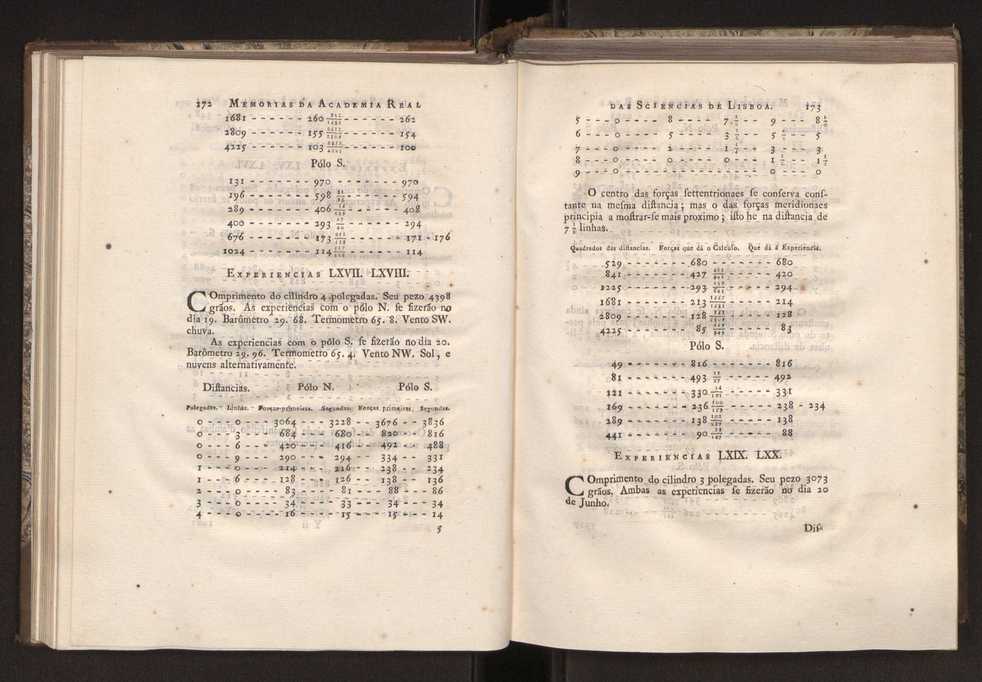 172 MEMORIAS DA ACADEMIA REAL
1681 - - - - - - 260 - - - - - - 262
2809 - - - - - - 155 - - - - - - 154
4225 - - - - - - 103 - - - - - - 100
Pólo S.
131 - - - - - - 970 - - - - - - 970
196 - - - - - - 598 - - - - - - 594
289 - - - - - - 406 - - - - - - 408
400 - - - - - - 293 - - - - - - 294
676 - - - - - - 173 - - - - - - 171 - 176
1024 - - - - - - 114 - - - - - - 114
EXPERIENCIAS LXVII. LXVIII.
COmprimento do cilindro 4 polegadas. Seu pezo 4398
grãos. As experiencias com o pólo N. ſe fizerão no
dia 19. Barômetro 29. 68. Termometro 65. 8. Vento SW.
chuva.
As experiencias com o pólo S. ſe fizerão no dia 20.
Barômetro 29. 96. Termometro 65. 4. Vento NW. Sol, e
nuvens alternativamente.
Diſtancias. Pólo N. Pólo S.
Polegadas. - Linhas. - Forças primeiras. Segundas. Forças primeiras. Segundas.
0 - - 0 - - 3064 - - 3228 - - 3676 - - 3836
0 - - 3 - - 684 - - 680 - - 820 - - 816
0 - - 6 - - 420 - - 416 - - 492 - - 488
0 - - 9 - - 290 - - 294 - - 334 - - 331
1 - - 0 - - 214 - - 216 - - 238 - - 234
1 - - 6 - - 128 - - 126 - - 138 - - 136
2 - - 0 - - 83 - - 81 - - 88 - - 86
3 - - 0 - - 34 - - 33 - - 34 - - 34
4 - - 0 - - 16 - - 15 - - 15 - - 14
5
DAS SCIENCIAS DE LISBOA. 173
5 - - - 0 - - - 8 - - - 7 1/2 - - 9 - - - 8 1/2
6 - - - 0 - - - 5 - - - 3 1/2 - - 5 - - 5
7 - - - 0 - - - 2 - - - 1 1/2 - - 3 - - - 3
8 - - - 0 - - - 0 - - - 0 - - - 1 - - 1 1/2
9 - - - 0 - - - - - - - - - - - 0 - - - 0
O centro das forças ſettentrionaes ſe conſerva conſ-
tante na meſma diſtancia; mas o das forças meridionaes
principia a moſtrar-ſe mais proximo; iſto he na diſtancia de
7 1/2 linhas.
Quadrados das diſtancias. Forças que dá o Calculo. Que dá a Experiencia.
529 - - - - - - 680 - - - - - - 680
841 - - - - - - 427 - - - - - - 420
1225 - - - - - - 293 - - - - - - 294
1681 - - - - - - 213 - - - - - - 214
2809 - - - - - - 128 - - - - - - 128
4225 - - - - - - 85 - - - - - - 83
Pólo S.
49 - - - - - - 816 - - - - - - 816
81 - - - - - - 493 - - - - - - 492
121 - - - - - - 330 - - - - - - 331
169 - - - - - - 236 - - - - - - 238 - 234
289 - - - - - - 138 - - - - - - 138
441 - - - - - - 90 - - - - - - 88
EXPERIENCIAS LXIX. LXX.
COmprimento do cilindro 3 polegadas. Seu pezo 3073
grãos. Ambas as experiencias ſe fizerão no dia 20
de Junho.
Diſ-